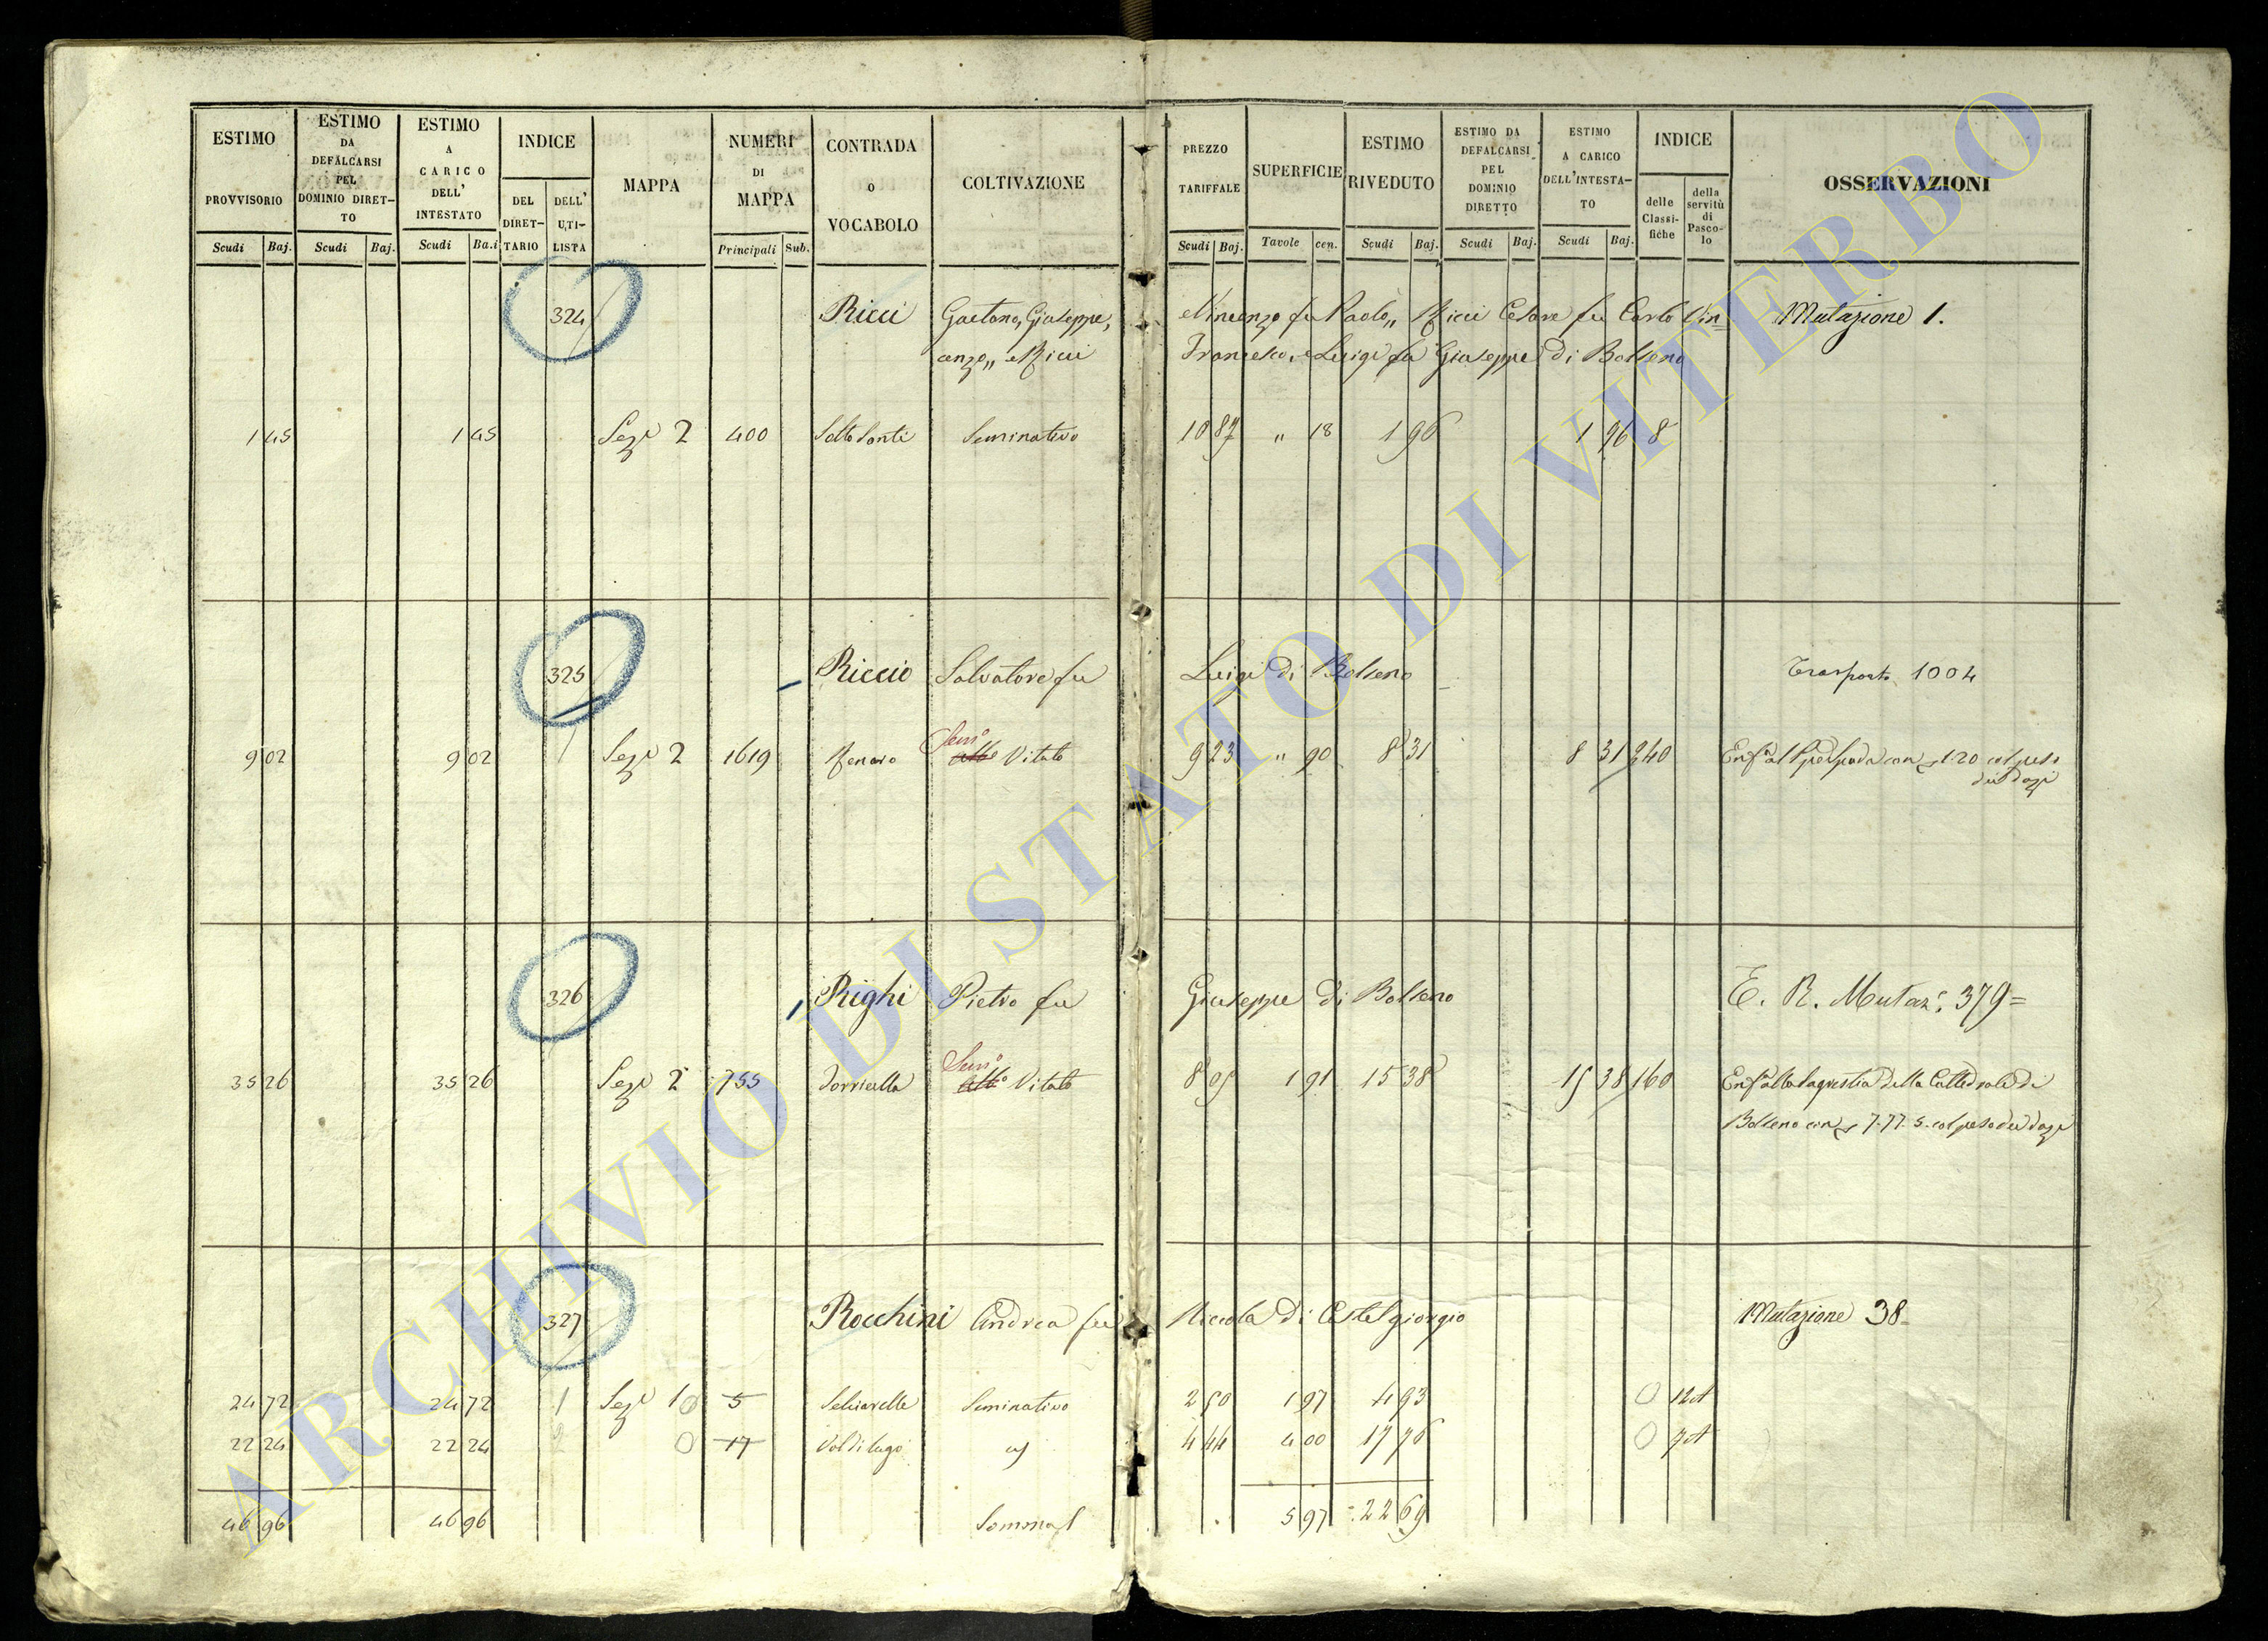 ESTIMO PROVVISORIO Scudi Baj.
ESTIMO DA DEFALCARSI PEL DOMINIO DIRET-TO Scudi Baj.
ESTIMO A CARICO DELL' INTESTATO Scudi Ba.i
INDICE DEL DIRET-TARIO DELL' UTI-LISTA
MAPPA
NUMERI DI MAPPA Principali Sub.
CONTRADA O VOCABOLO
COLTIVAZIONE
PREZZO TARIFFALE Scudi Baj.
SUPERFICIE Tavole cen.
ESTIMO RIVEDUTO Scudi Baj.
ESTIMO DA DEFALCARSI PEL DOMINIO DIRETTO Scudi Baj.
ESTIMO A CARICO DELL'INTESTA-TO Scudi Baj.
INDICE delle Classi-fiche della servitù di Pasco-lo
OSSERVAZIONI
324 Ricci Gaetano, Giuseppe, e Vincenzo fu Paolo,, Ricci Cesare fu Carlo Vin= Mutazione 1.
cenzo,, e Ricci Francesco, e Luigi fu Giuseppe di Bolseno
1 45 1 45 Sez.e 2 400 Seminativo 10 87 " 18 1 96 1 96 8
325 Riccio Salvatore fu Luigi di Bolseno Trasporto 1004
9 02 9 02 Sez.e 2 1619 Semo Vitato 9 23 " 90 8 31 8 31 240
326 Righi Pietro fu Giuseppe di Bolseno E. R. Mutaz.e 379=
35 26 35 26 Sez.e 2 755 Torricella Semo Vitato 8 05 1 91 15 38 15 38 160 Enf.a alla Sagrestia della Cattedrale di
Bolseno con 7.77.5 col peso dei dazi
327 Rocchini Andrea fu Niccola di Castelgiorgio Mutazione 38
24 72 24 72 1 Sez.e 1 5 Seminativo 2 50 1 97 4 93
22 24 22 24 2 17 Val di lago 4 44 4 00 17 76
46 96 46 96 Somma 5 97 22 69
ARCHIVIO DI STATO DI VITERBO